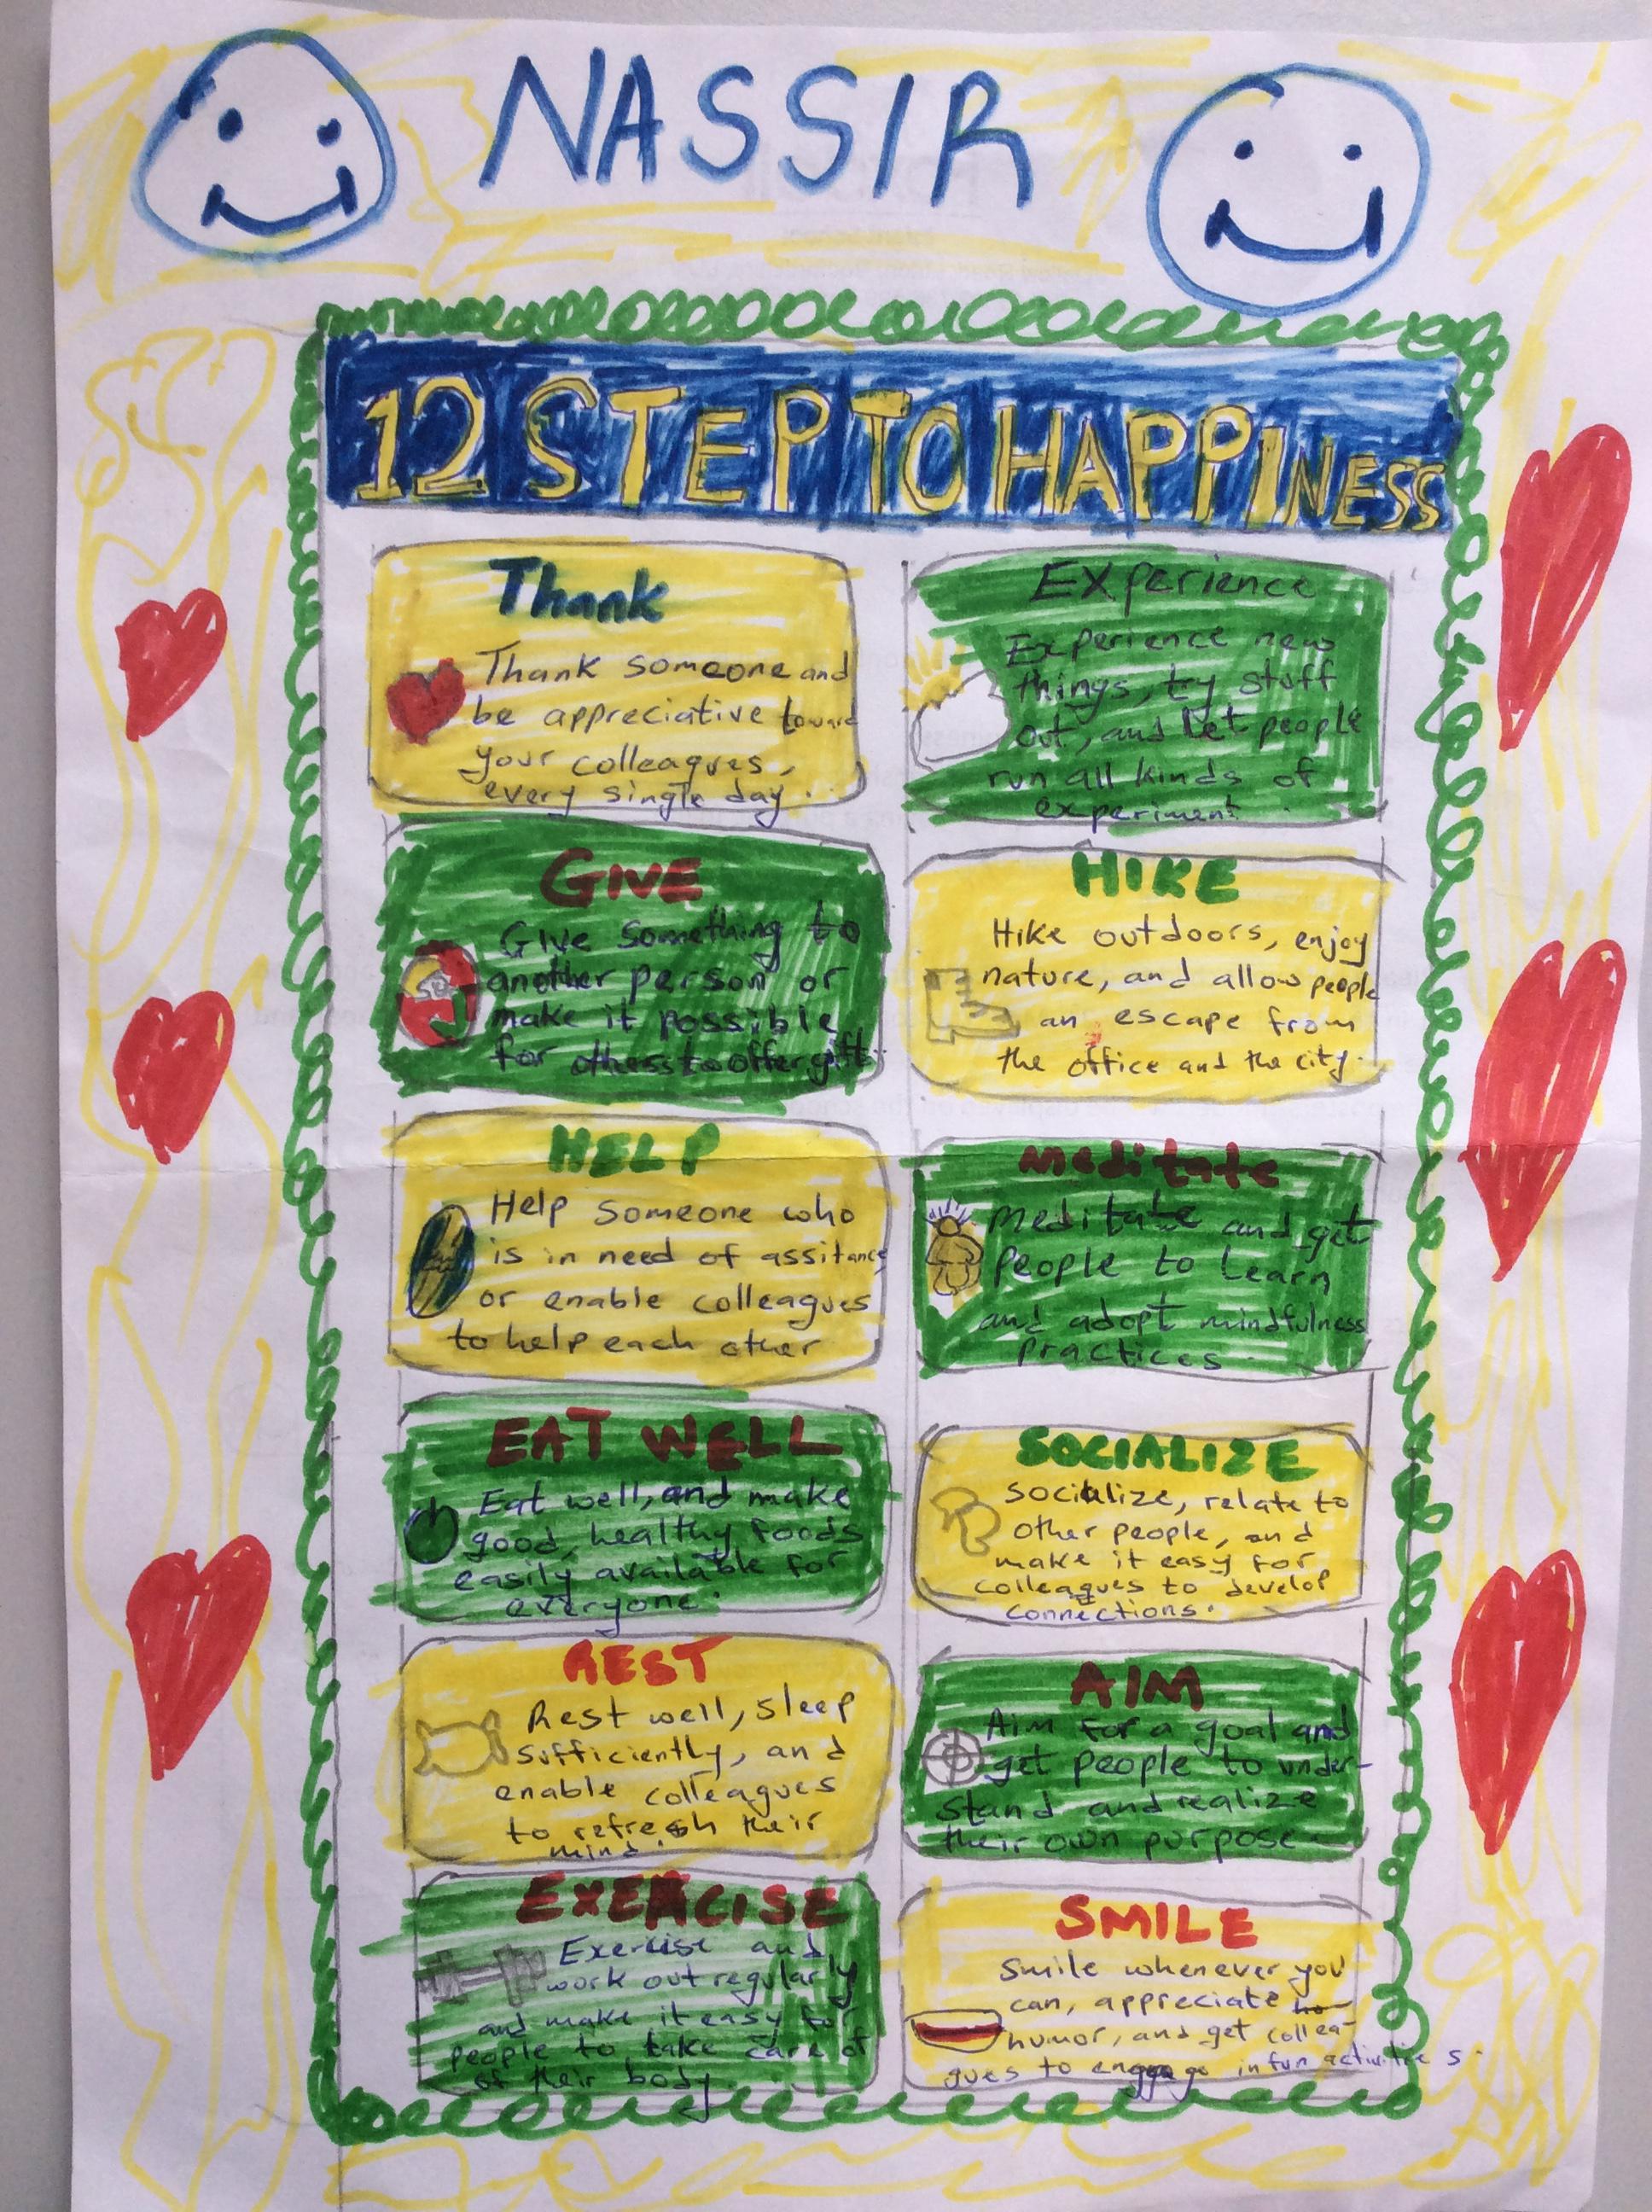 NASSIR
12 STEP TO HAPPINESS
Thank
Thank someone and
be appreciative toward
your colleagues,
every single day.
Experience
Experience new
things, try stuff
out, and let people
run all kinds of
experiment.
GIVE
Give something to
another person or
make it possible
for others to offer gift.
HIKE
Hike outdoors, enjoy
nature, and allow people
an escape from
the office and the city.
HELP
Help someone who
is in need of assitance
or enable colleagues
to help each other
Meditate
Meditate and get
people to learn
and adopt mindfulness
practices.
EAT WELL
Eat well, and make
good, healthy foods
easily available for
everyone.
SOCIALIZE
Socialize, relate to
other people, and
make it easy for
colleagues to develop
connections.
REST
Rest well, sleep
sufficiently, and
enable colleagues
to refresh their
mind.
AIM
Aim for a goal and
get people to under-
stand and realize
their own purpose.
EXERCISE
Exercise and
work out regularly
and make it easy for
people to take care of
of their body.
SMILE
Smile whenever you
can, appreciate ho-
humor, and get collea-
gues to engage in fun activities.